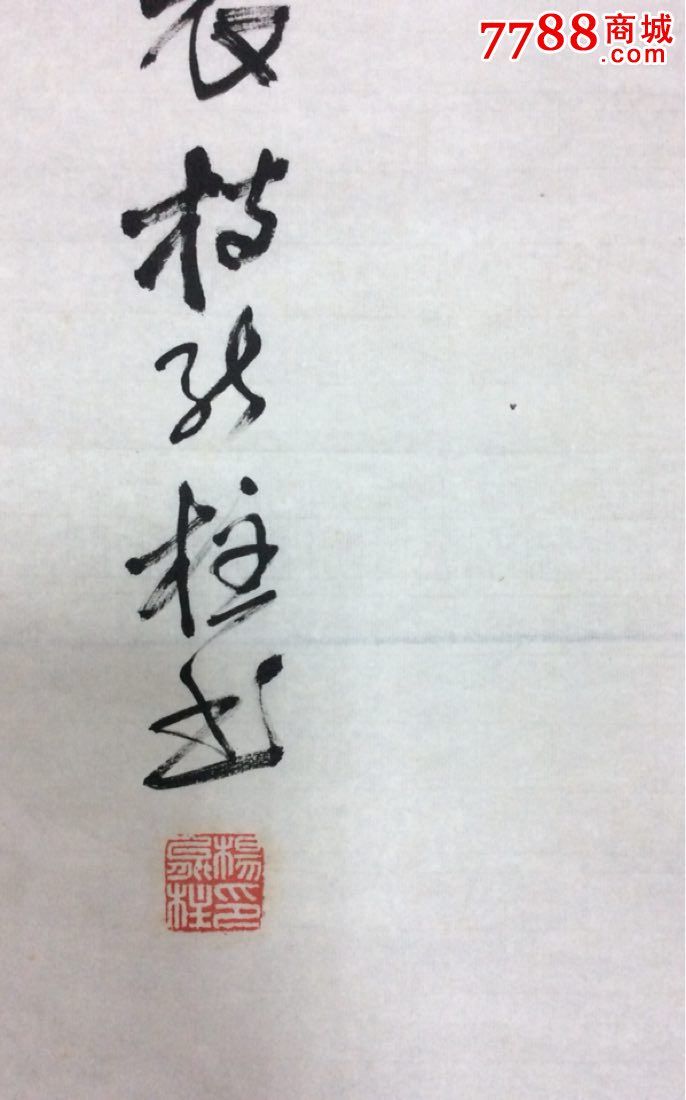 7788商城
.com
杨柱书
楊印
柱